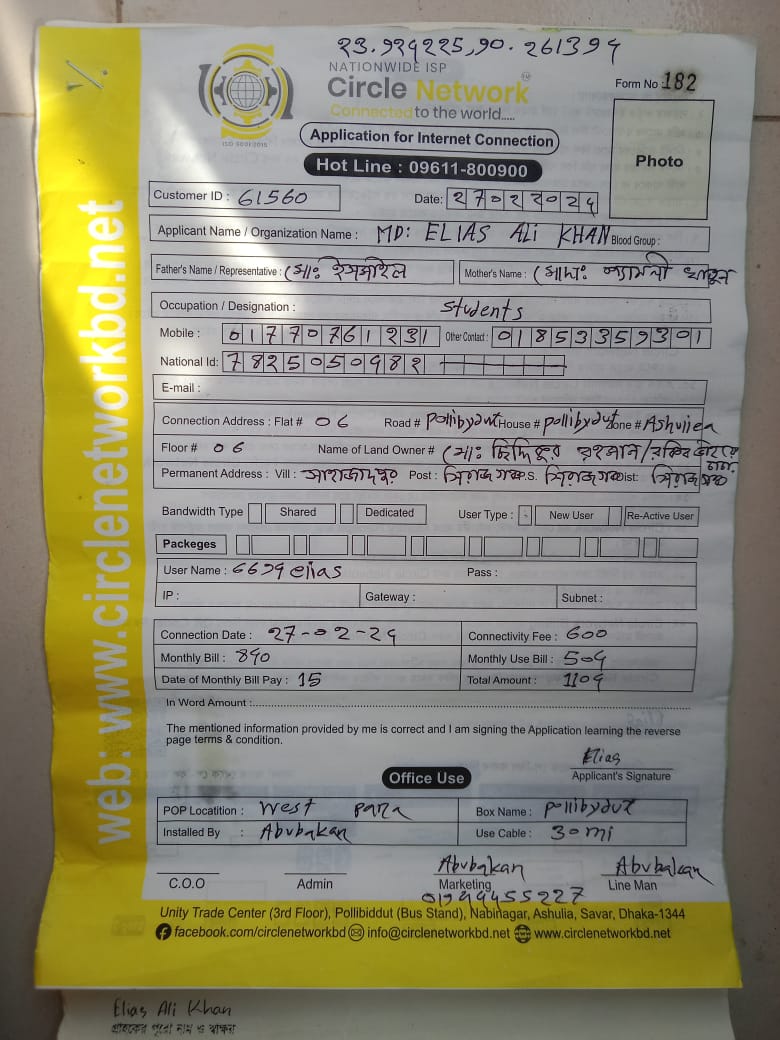 23.924225,90.261394
NATIONWIDE ISP
Circle Network
Connected to the world.....
ISO 9001:2015
Form No : 182
Application for Internet Connection
Hot Line : 09611-800900
Photo
Customer ID : 61560
Date: 27022024
Applicant Name / Organization Name : MD: ELIAS ALi KHAN Blood Group :
Father's Name / Representative : মোঃ ইসমাইল
Mother's Name : মোছাঃ শ্যামলী খাতুন
Occupation / Designation : Students
Mobile : 01770761231 Other Contact : 01853359301
National Id: 7825050982
E-mail :
Connection Address : Flat # 06 Road # Pollibydut House # pollibydut Zone # Ashuliea
Floor # 06 Name of Land Owner # মোঃ ছিদ্দিকুর রহমান/
Permanent Address : Vill : শাহজাদপুর Post : সিরাজগঞ্জ P.S. সিরাজগঞ্জ Dist: সিরাজগঞ্জ
Bandwidth Type Shared Dedicated User Type : New User Re-Active User
Packeges
User Name : 6679elias Pass :
IP : Gateway : Subnet :
Connection Date : 27-02-24 Connectivity Fee : 600
Monthly Bill : 840 Monthly Use Bill : 504
Date of Monthly Bill Pay : 15 Total Amount : 1104
In Word Amount :
The mentioned information provided by me is correct and I am signing the Application learning the reverse
page terms & condition.
Elias
Applicant's Signature
Office Use
POP Locatition : West para Box Name : pollibydut
Installed By : Abubakar Use Cable : 30 mi
Abubakar Abubakar
C.O.O Admin Marketing Line Man
01799455227
Unity Trade Center (3rd Floor), Pollibiddut (Bus Stand), Nabinagar, Ashulia, Savar, Dhaka-1344
facebook.com/circlenetworkbd info@circlenetworkbd.net www.circlenetworkbd.net
web: www.circlenetworkbd.net
Elias Ali Khan
গ্রাহকের পুরো নাম ও স্বাক্ষর